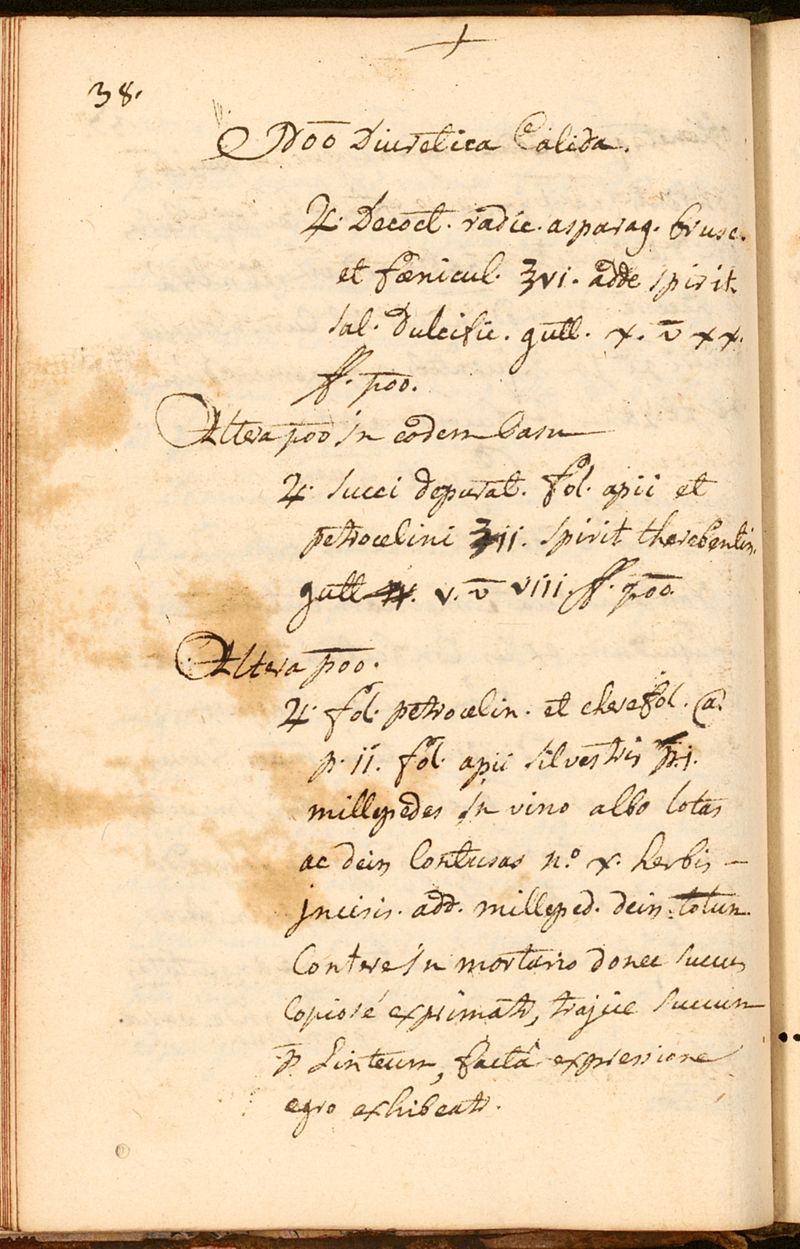 38.
Poo Diuretica Calida.
♃. Decoct. radic. asparag. brusc.
et fœnicul. ʒvi. adde spirit.
sal. Dulcific. gutt. x. v̄ xx.
ff. poo.
Altera poo in eodem Casu
♃. succi depurat. fol. apii et
petrocelini ʒii. spirit therebentin.
gutt v. v̄ viii. ff. poo
Altera poo.
♃. fol. petrocelin. et cherefol. @.
p. ii. fol. apii silvestris p.j.
millepedes in vino albo lotas
ac dein Contusas n.º x. herbis
jncisis. add. milleped. dein totum
Contere in mortario donec succus
Copiosé exprimatr, trajice succum
p Linteum, factâ expressione
egro exhibeatr.